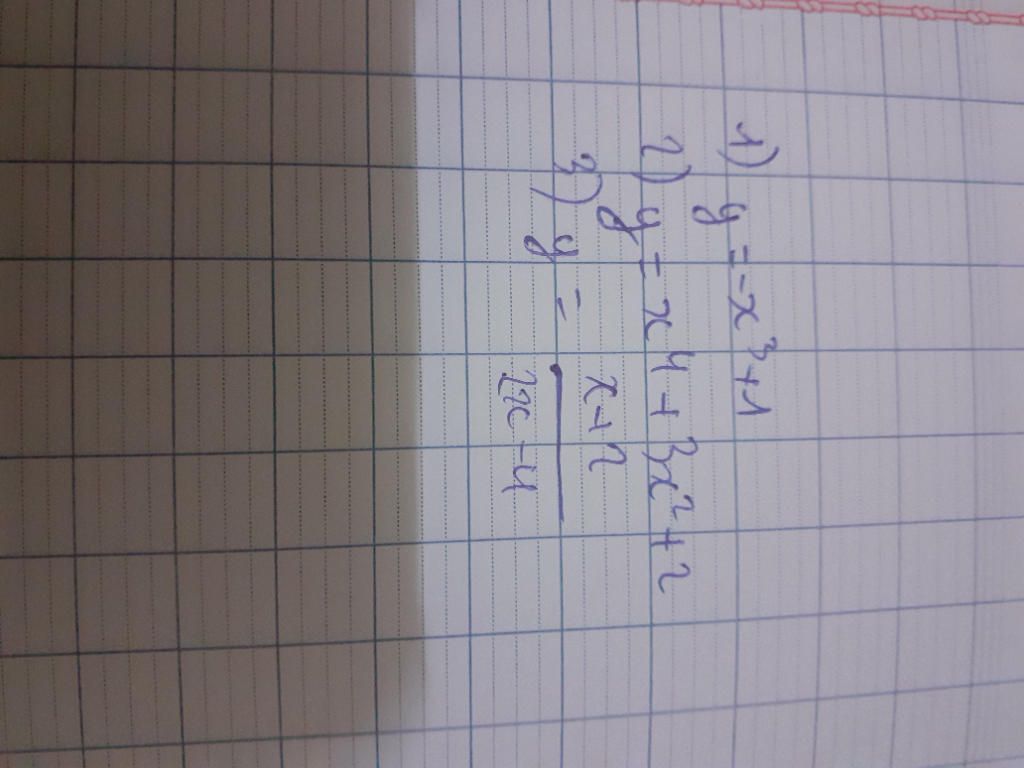 1) y = -x³ + 1
2) y = x⁴ + 3x² + 2
3) y = \frac{x+2}{2x-4}